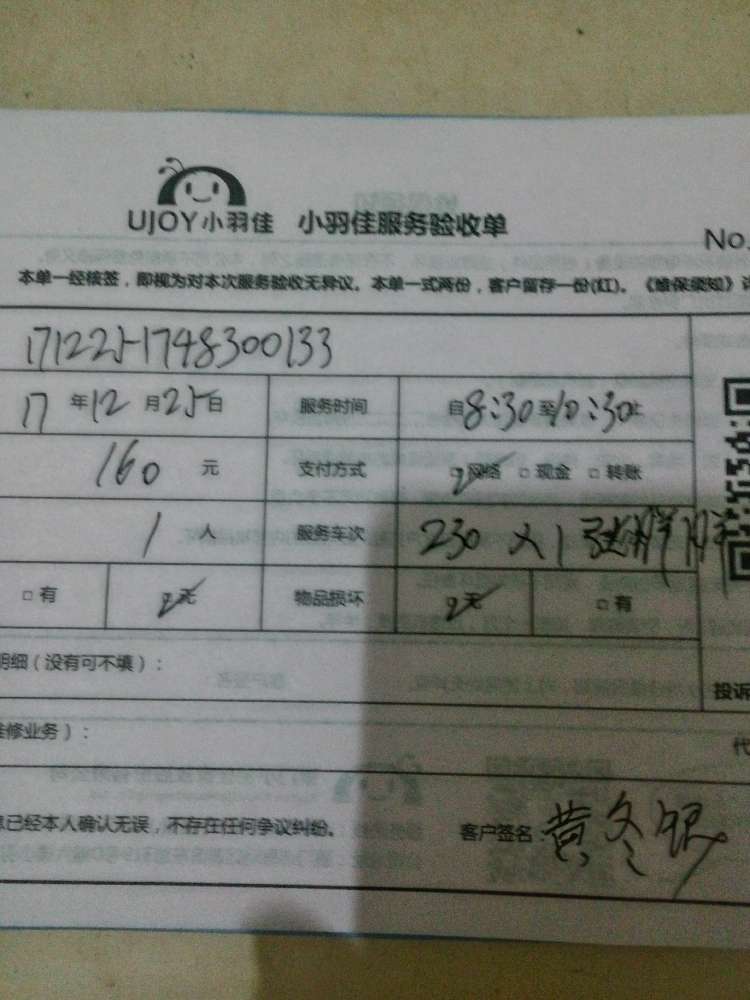 UJOY小羽佳 小羽佳服务验收单
No.
本单一经核签，即视为对本次服务验收无异议。本单一式两份，客户留存一份(红)。《维保须知》
171225-1748300133
17 年 12 月 25 日 服务时间 自 8:30 至 10:30 止
160 元 支付方式 网络 现金 转账
1 人 服务车次 230 X 1
有 无 物品损坏 无 有
明细（没有可不填）： 投诉
维修业务）：
已经本人确认无误，不存在任何争议纠纷。 客户签名： 黄冬银